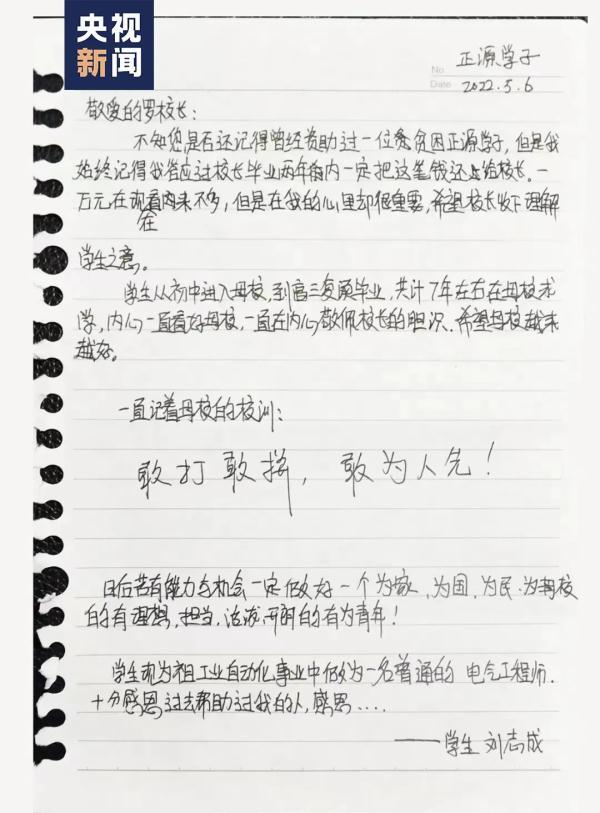 央视
新闻
正源学子
No
Date 2022.5.6
敬爱的罗校长：
不知您是否还记得曾经资助过一位贫困正源学子，但是我
始终记得我答应过校长毕业两年内一定把这笔钱还上给校长。一
万元在现看来不多，但是在我的心里却很重要，希望校长收下理解
在
学生之意。
学生从初中进入母校，到高三复读毕业，共计7年左右在母校求
学，内心一直看好母校，一直在内心敬佩校长的胆识，希望母校越来
越好。
一直记着母校的校训：
敢打敢拼，敢为人先！
日后若有能力与机会一定做好一个为家，为国，为民，为母校
的有理想，担当，活泼开朗的有为青年！
学生现为祖工业自动化事业中做为一名普通的 电气工程师．
十分感恩过去帮助过我的人，感恩....
——学生 刘志成